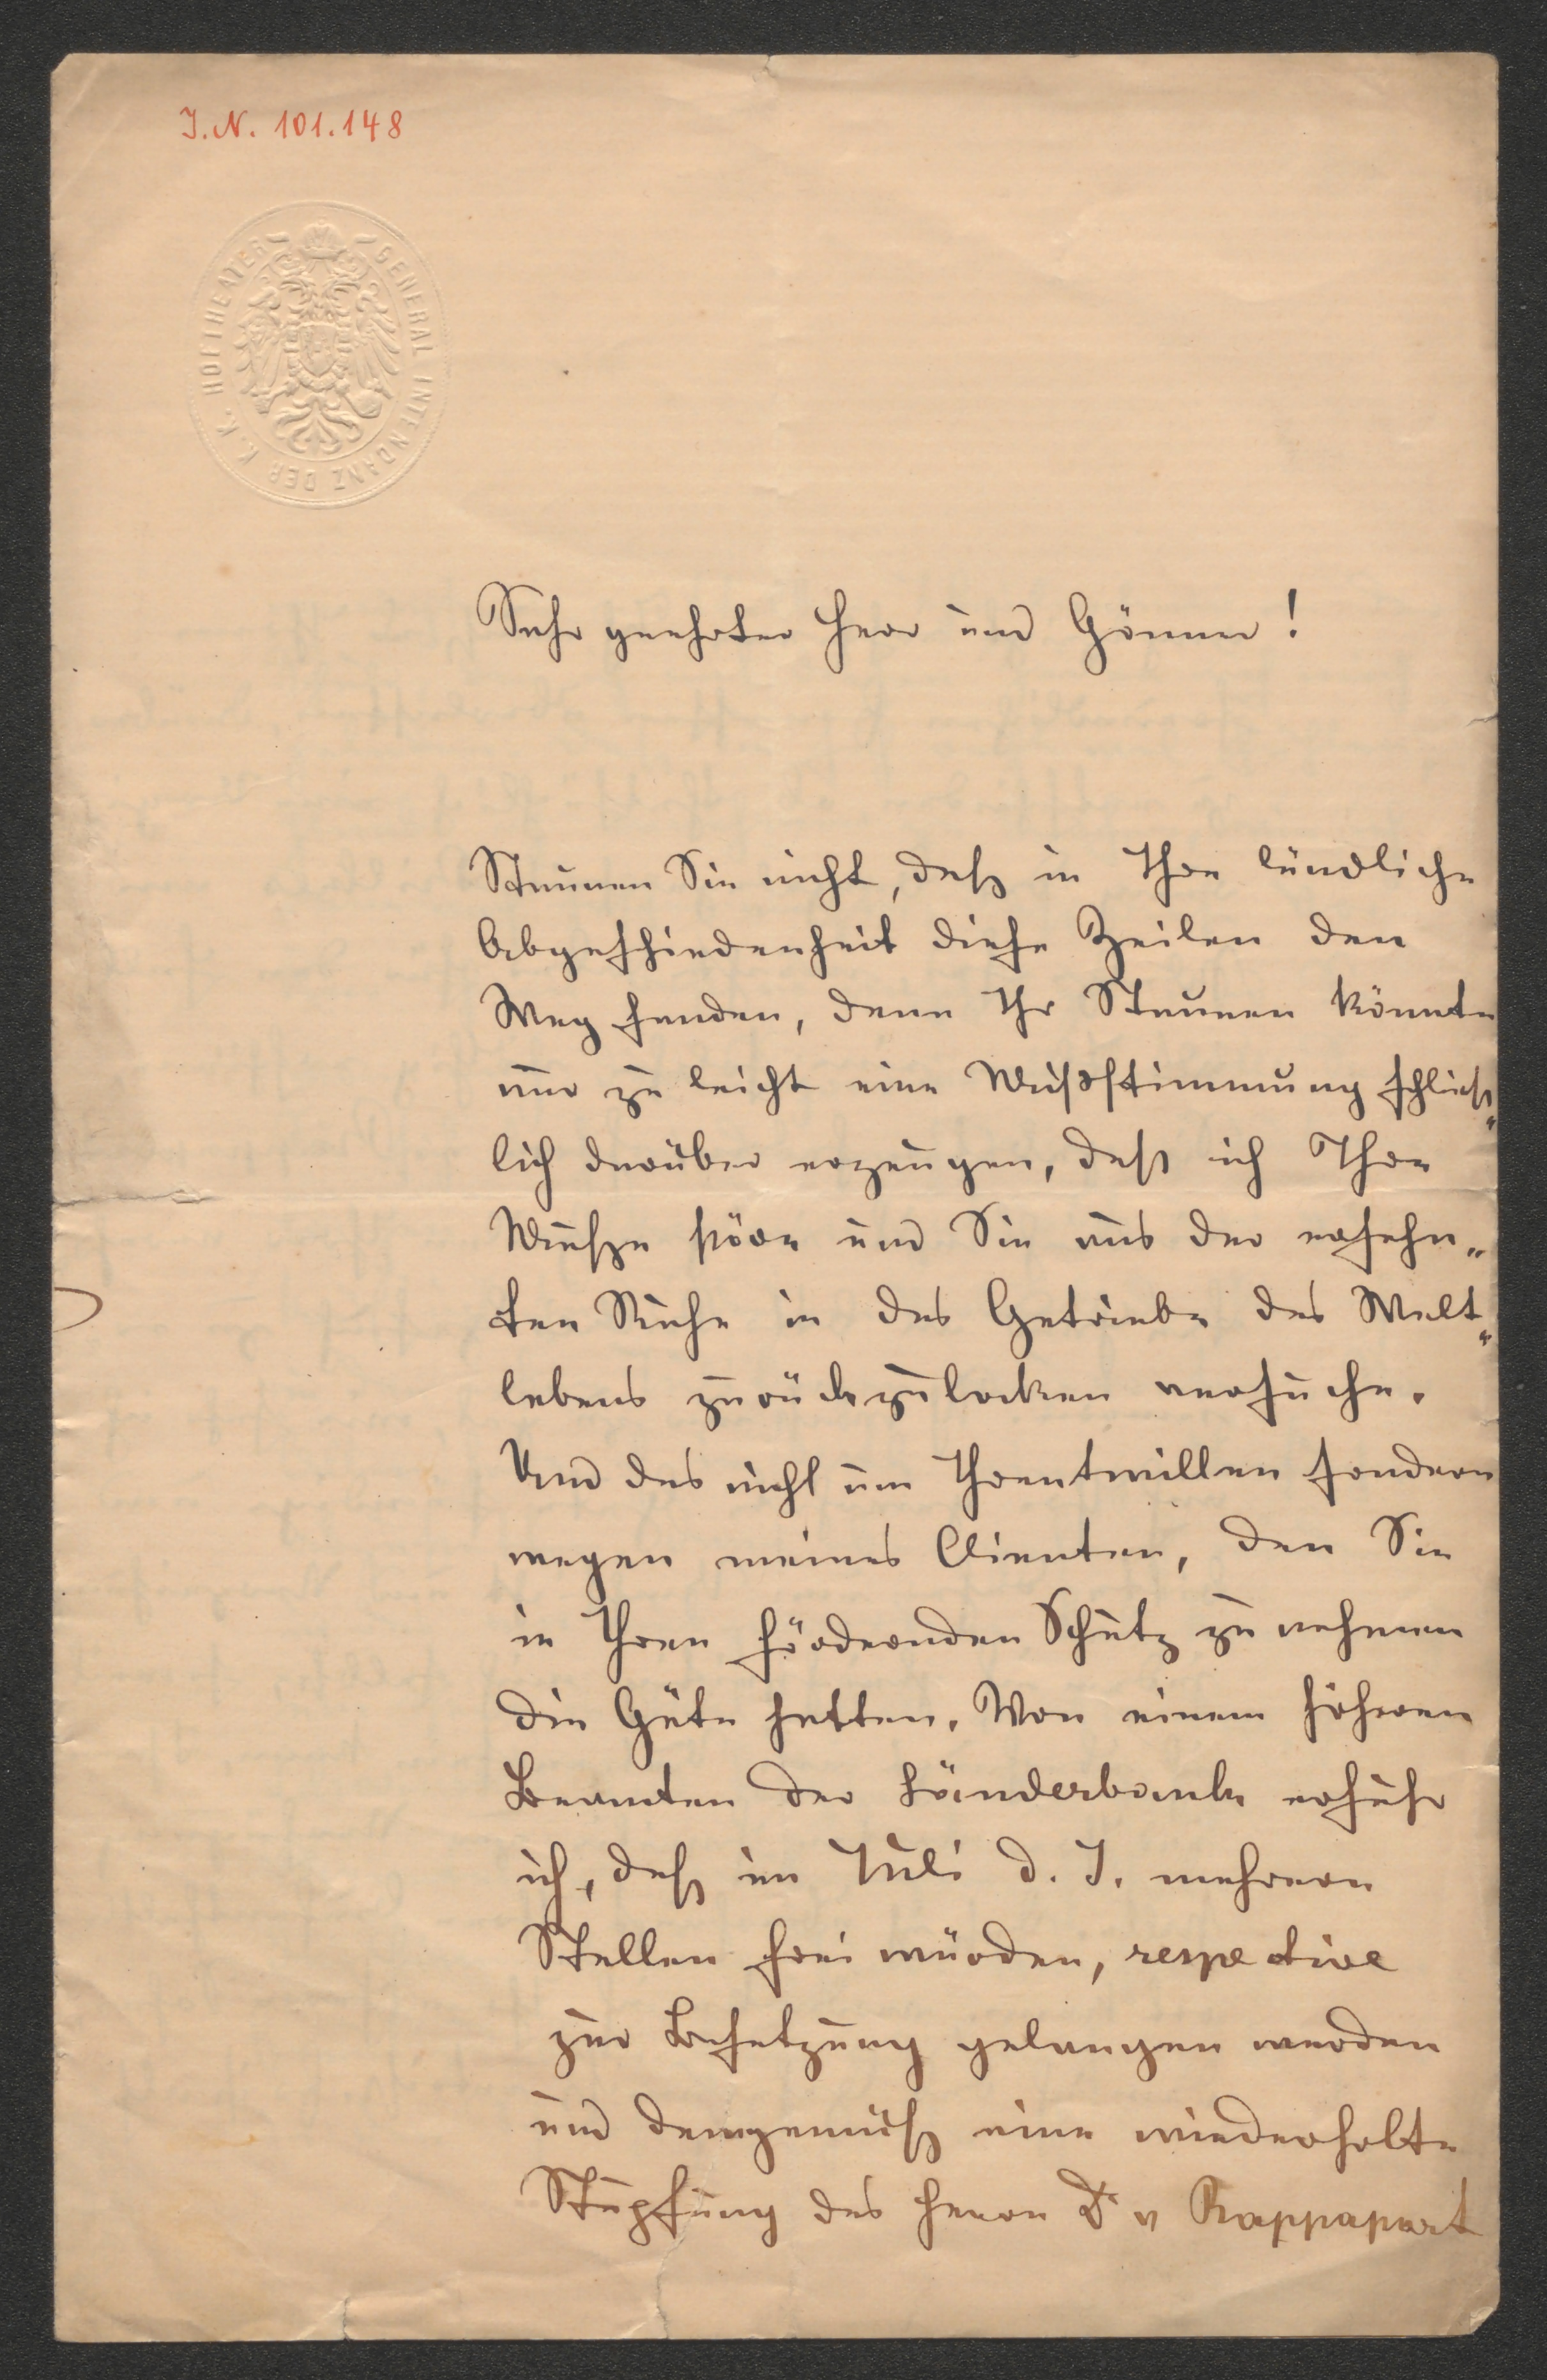 I.N. 101.148
GENERAL INTENDANZ DER K. K. HOFTHEATER
Sehr geehrter Herr und Gönner!
Staunen Sie nicht, daß in Ihre ländliche
Abgeschiedenheit diese Zeilen den
Weg fanden, denn Ihr Staunen könnte
nur zu leicht eine Mißstimmung schließ„
lich darüber erzeugen, daß ich Ihre
Muße störe und Sie aus der ersehn„
ten Ruhe in das Getriebe des Welt„
lebens zurückzulocken versuche.
Und das nicht um Ihrentwillen sondern
wegen meines Clienten, den Sie
in Ihren fördernden Schutz zu nehmen
die Güte hatten. Von einem höheren
Beamten der Länderbank erfuhr
ich, daß im Juli d. J. mehrere
Stellen frei würden, respective
zur Besetzung gelangen werden
und demgemäß eine wiederholte
Stupfung des Herrn Dr v Rappapart